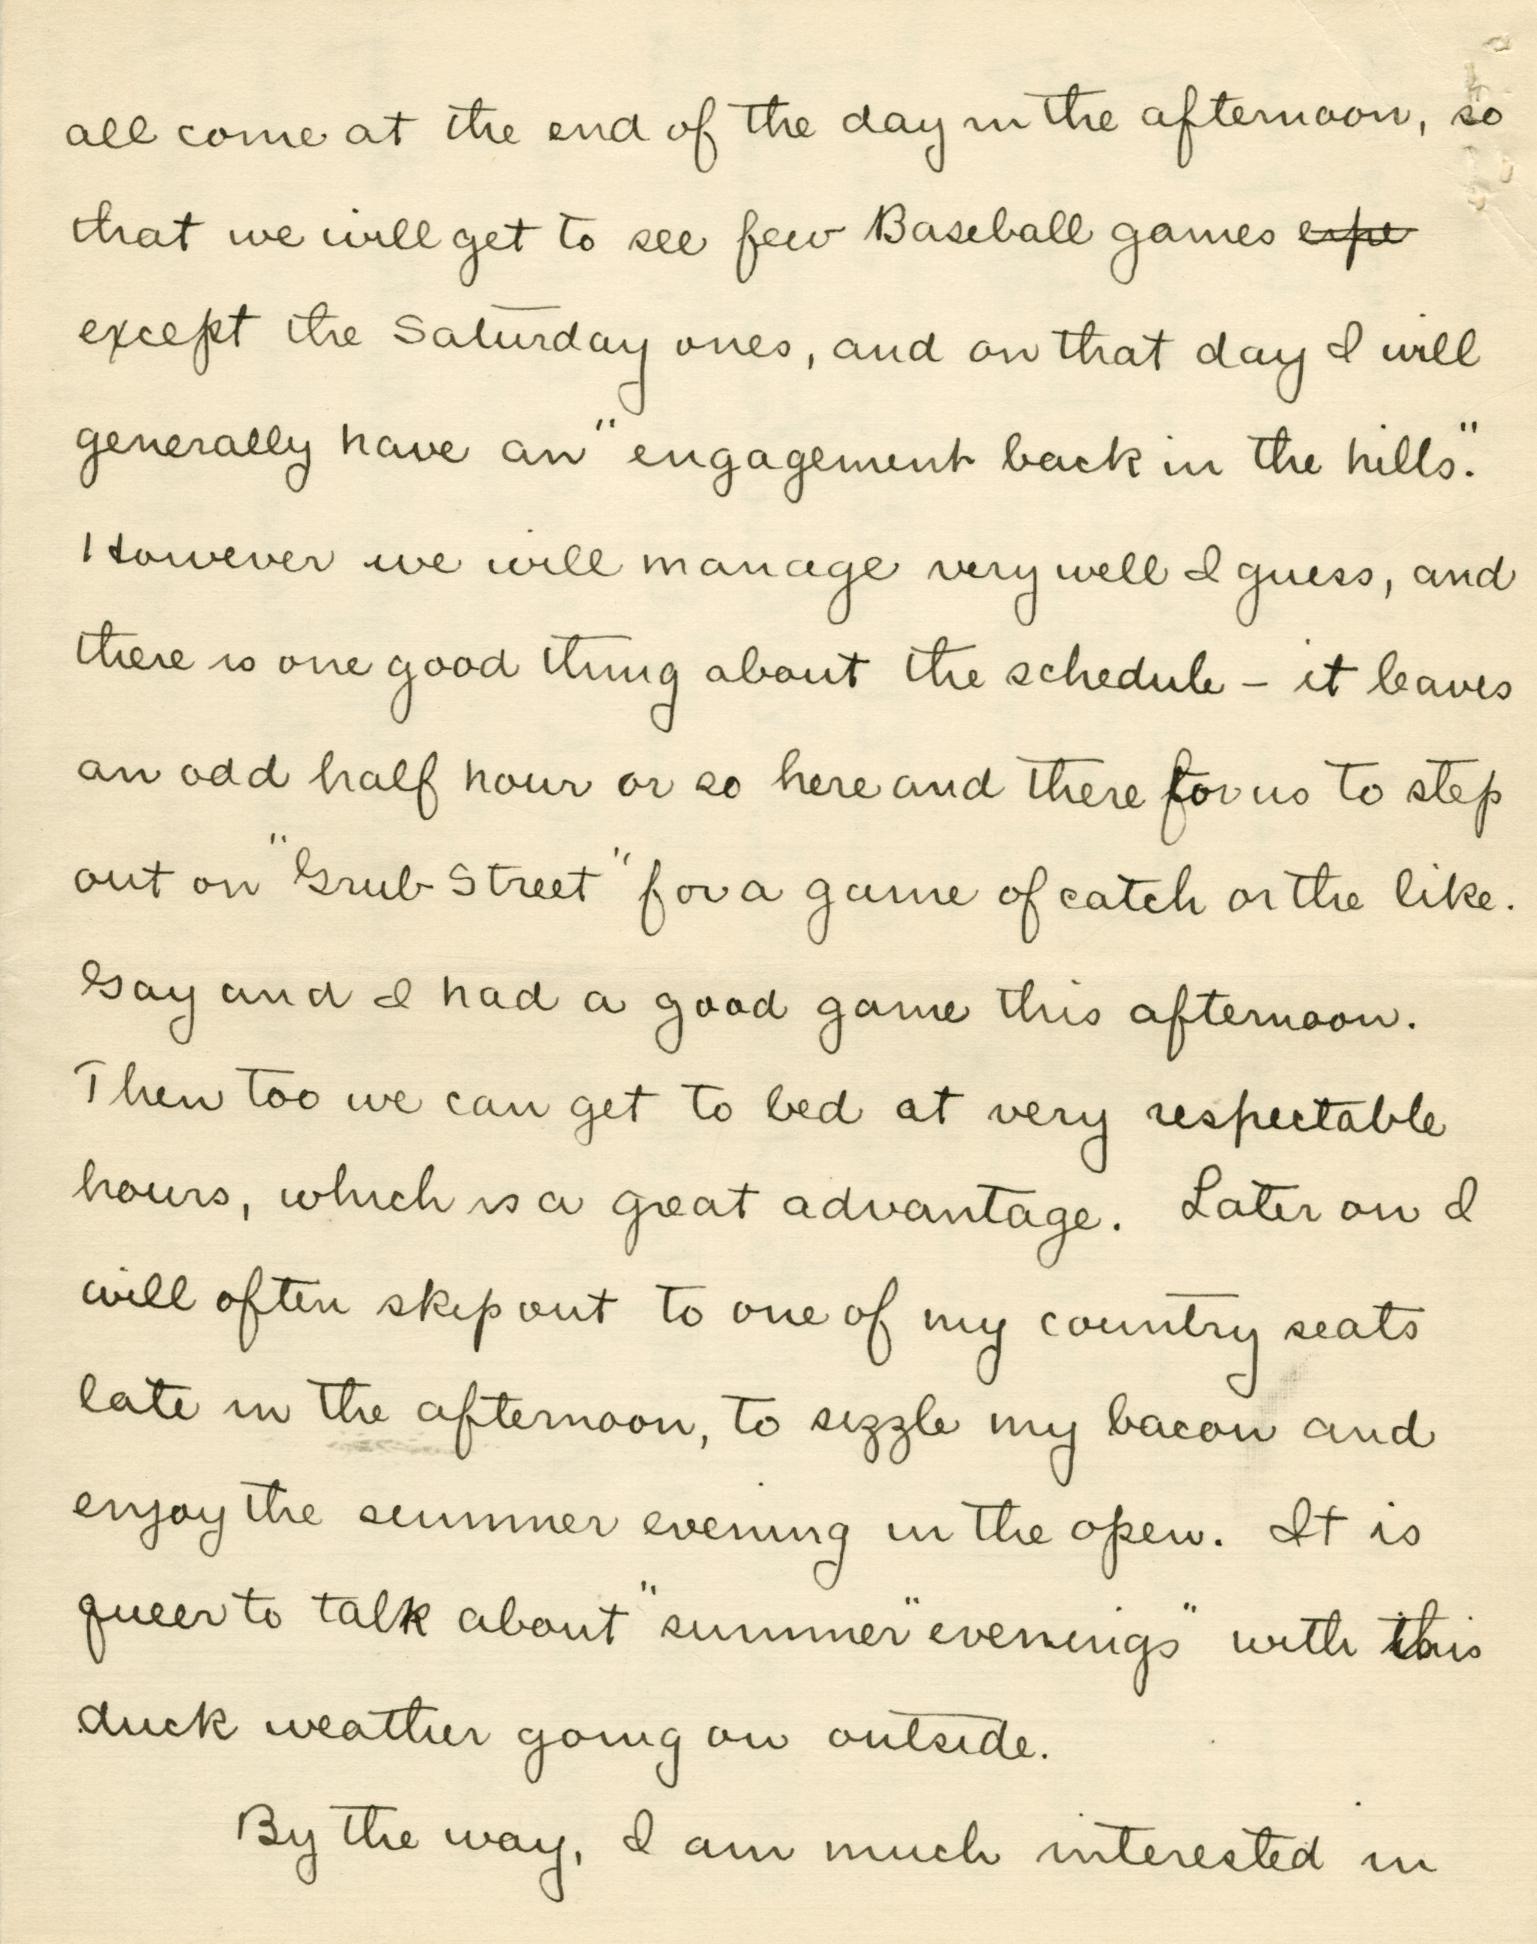 all come at the end of the day in the afternoon, so
that we will get to see few Baseball games expe
except the Saturday ones, and on that day I will
generally have an "engagement back in the hills."
However we will manage very well I guess, and
there is one good thing about the schedule – it leaves
an odd half hour or so here and there for us to step
out on "Grub Street" for a game of catch or the like.
Gay and I had a good game this afternoon.
Then too we can get to bed at very respectable
hours, which is a great advantage. Later on I
will often skip out to one of my country seats
late in the afternoon, to sizzle my bacon and
enjoy the summer evening in the open. It is
queer to talk about "summer" evenings" with this
duck weather going on outside.
By the way, I am much interested in